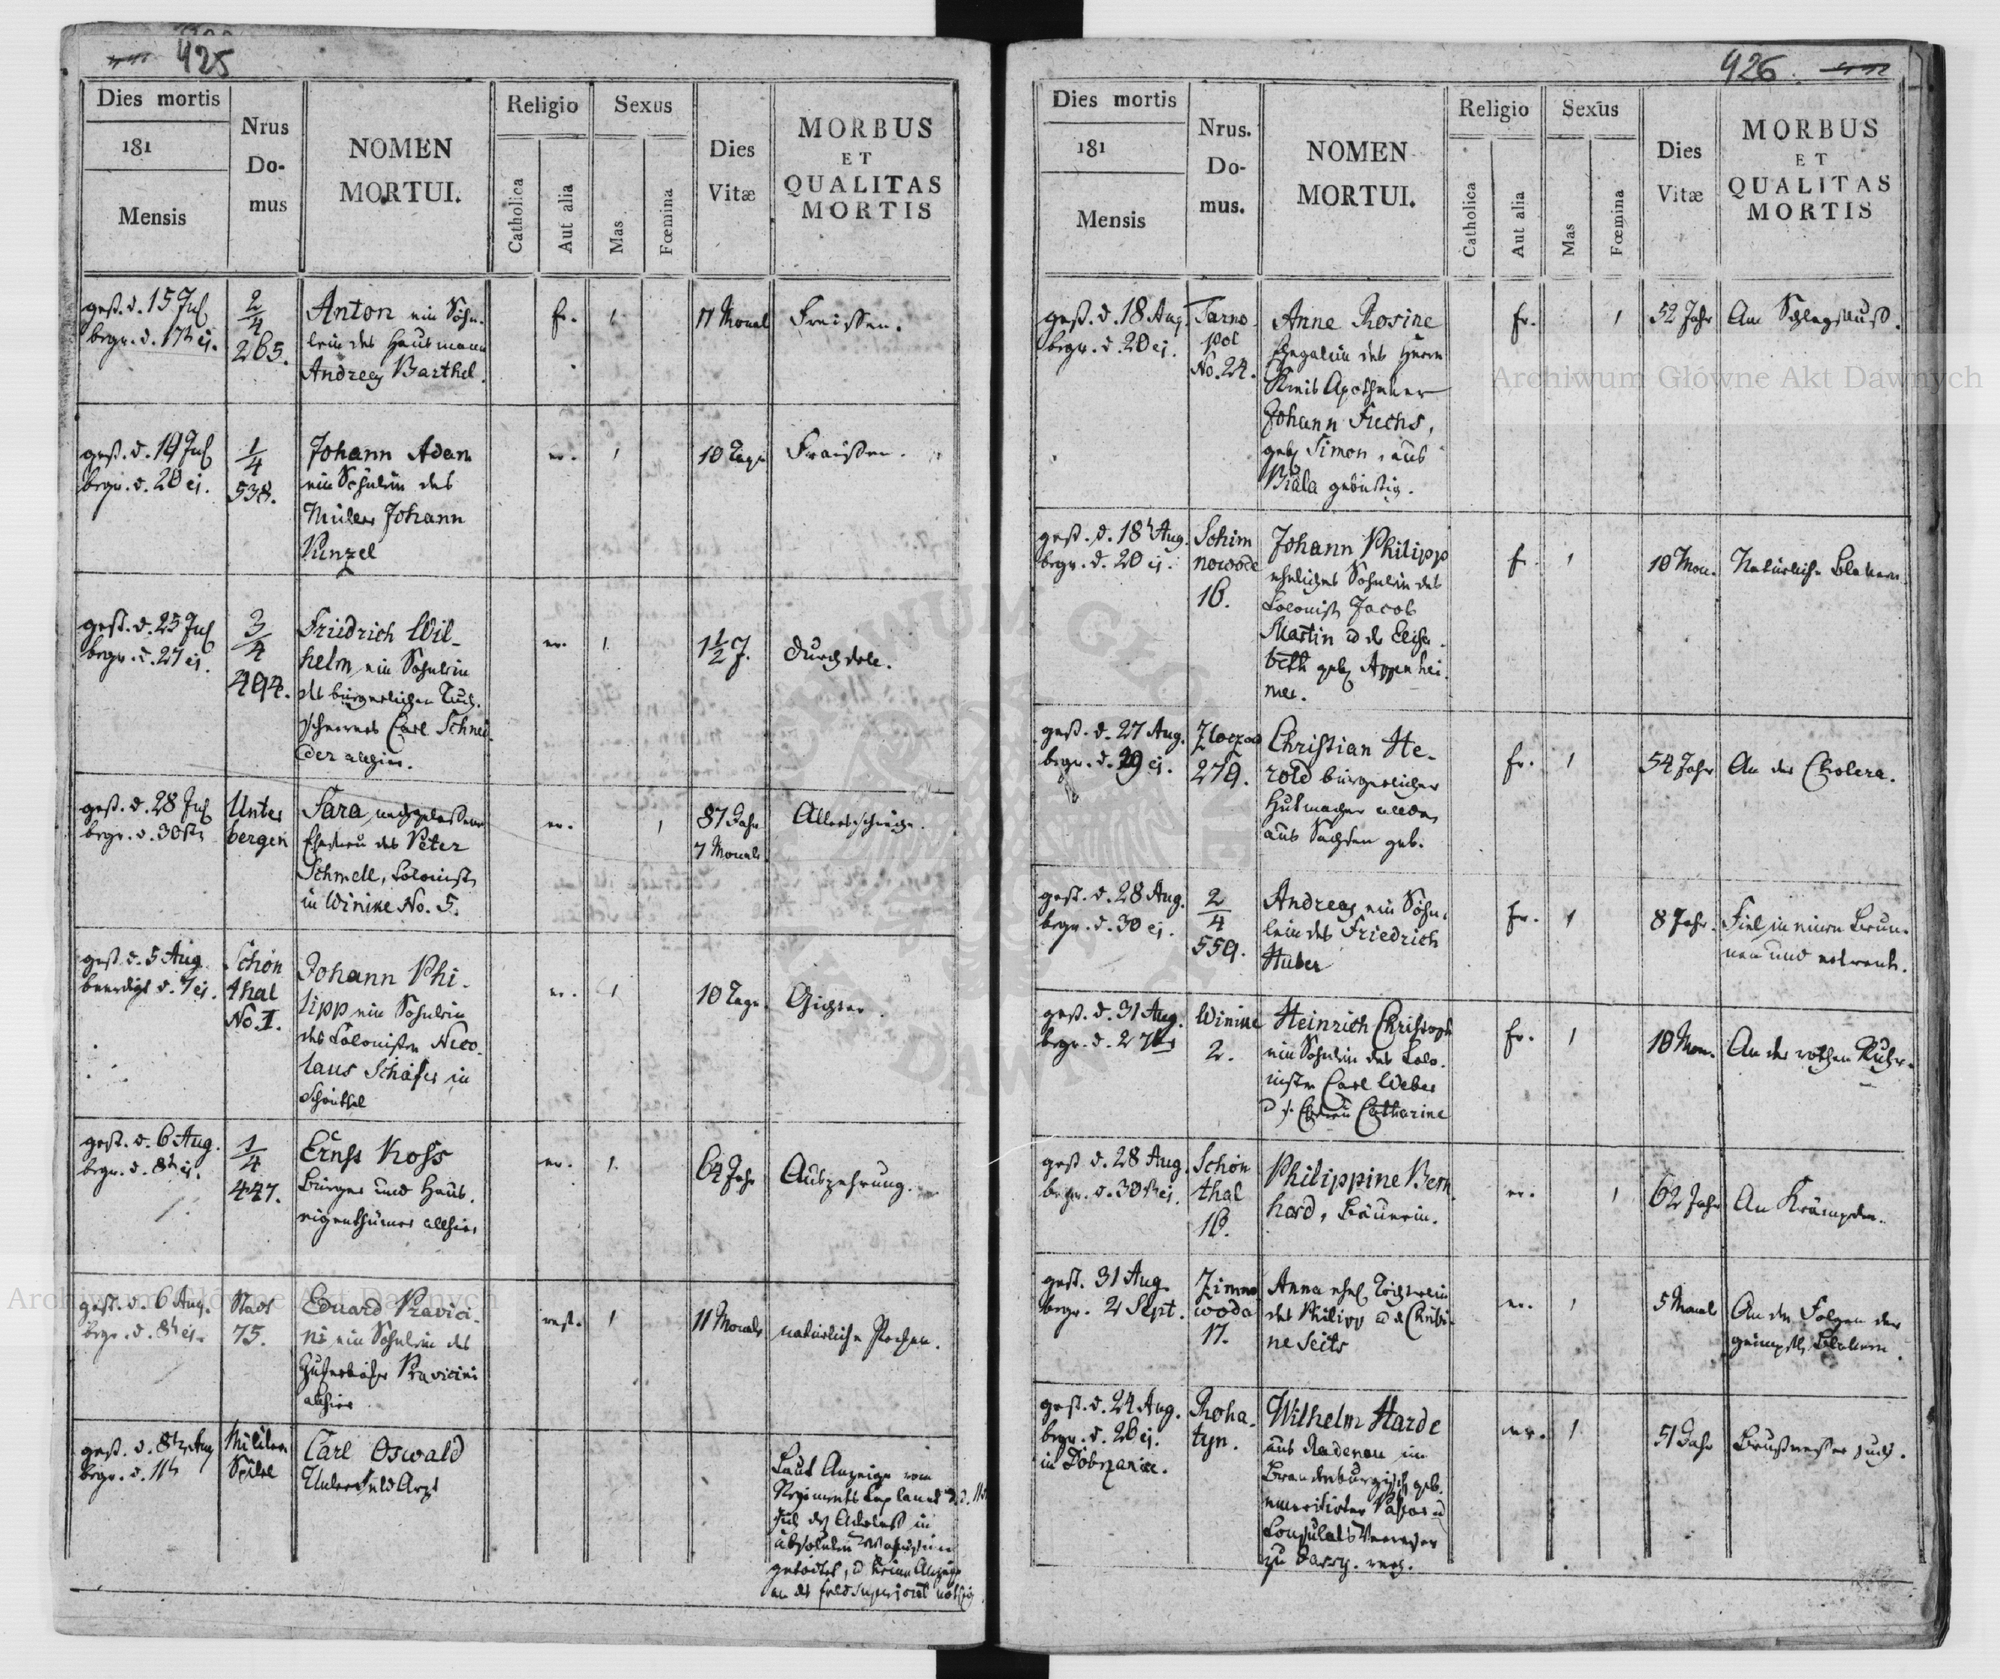 425
Dies mortis
181
Mensis
Nrus
Do-
mus
NOMEN
MORTUI.
Religio
Catholica
Aut alia
Sexus
Mas
Fœmina
Dies
Vitæ
MORBUS
ET
QUALITAS
MORTIS
gest. d. 15 Jul
begr. d. 17t ej.
2/4
265.
Anton ein Söhn-
lein des Hausmann
Andreas Barthel.
1
11 Monat
Fraissen.
gest. d. 19 Jul
begr. d. 20 ej.
1/4
538.
Johann Adam
ein Söhnlein des
Müllers Johann
Kunzel
1
10 Tage
Fraissen.
gest. d. 25 Jul
begr. d. 27 ej.
3/4
494.
Friedrich Wil-
helm, ein Söhnlein
des bürgerlichen Tuch-
scheerers Carl Schnei-
der allhier.
1
1½ J.
gest. d. 28 Jul
begr. d. 30st
Unter
bergen
Sara, nachgelassene
Ehefrau des Peter
Schmell, Colonist
in Winike No. 5.
1
87 Jahr
7 Monate
Altersschwäche.
gest. d. 5 Aug.
beerdigt d. 7 ej.
Schön
thal
No. I.
Johann Phi-
lipp ein Söhnlein
des Colonisten Nico-
laus Schäfer in
Schönthal
1
10 Tage.
Gichter.
gest. d. 6 Aug.
begr. d. 8t ej.
1/4
447.
Ernst Koss
Bürger und Haus-
eigenthümer allhier
1
64 Jahr
Auszehrung.
gest. d. 6 Aug.
begr. d. 8t ej.
Stadt
75.
Eduard Pravici-
ni ein Söhnlein des
Zuckerbäcker Pravicini
allhier
1
11 Monate
natürliche Pocken.
gest. d. 8t Aug
begr. d. 11t
Militär
Spital
Carl Oswald
Unterfeld Arzt
Laut Anzeige vom
Regiments Caplan
getödtet, d keine Anzeige
426
Dies mortis
181
Mensis
Nrus.
Do-
mus.
NOMEN
MORTUI.
Religio
Catholica
Aut alia
Sexus
Mas
Fœmina
Dies
Vitæ
MORBUS
ET
QUALITAS
MORTIS
gest. d. 18 Aug.
begr. d. 20 ej.
Tarno
pol
No. 24.
Anne Rosine
Ehegattin des Herrn
Kreis Apotheker
Johann Fuchs,
geb. Simon, aus
Biala gebürtig.
1
52 Jahr
Am Schlagfluß.
gest. d. 18t Aug.
begr. d. 20 ej.
Schim
nowode
16.
Johann Philipp
eheliches Söhnlein des
Colonist Jacob
Martin u der Elisa-
beth geb. Appenhei-
mer.
1
10 Mon.
Natürliche Blattern.
gest. d. 27 Aug.
begr. d. 29 ej.
Zloczow
279.
Christian He-
rold bürgerlicher
Hutmacher allda,
aus Sachsen geb.
1
54 Jahr
An der Cholera.
gest. d. 28 Aug.
begr. d. 30 ej.
2/4
559.
Andreas ein Söhn-
lein des Friedrich
Huber
1
8 Jahr.
Fiel in einen Brun-
nen und ertrank.
gest. d. 31 Aug.
begr. d. 2 7br
Winike
2.
Heinrich Christoph
ein Söhnlein des Colo-
nisten Carl Weber
Catharine
1
10 Mon.
An der rothen Ruhr.
gest d. 28 Aug.
begr. d. 30st ej.
Schön
thal
16.
Philippine Bern
hard, Bäuerin.
1
62 Jahr
An Krämpfen.
gest. 31 Aug
begr. 2 Sept.
Zimno
woda
17.
Anna ehel. Töchterlein
des Philipp u d Christi-
ne Seits
1
5 Monat
An den Folgen der
geimpften Blattern.
gest. d. 24 Aug.
begr. d. 26 ej.
in Dobrzanice.
Roha-
tyn.
Wilhelm Harde
aus Radenau im
Brandenburgisch geb.
emeritirter Pastor u
1
51 Jahr
Brustwassersucht.
Archiwum Główne Akt Dawnych
Archiwum Główne Akt Dawnych